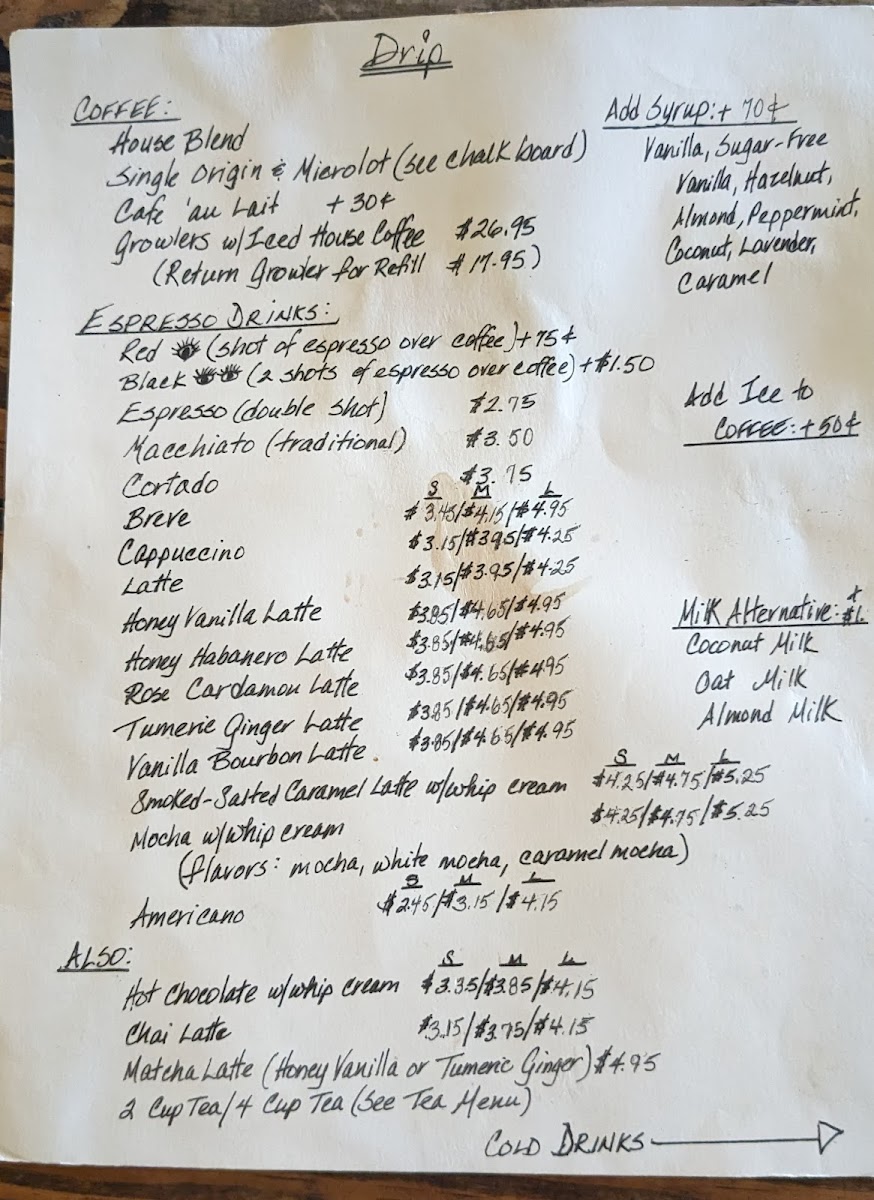 Drip
COFFEE:
House Blend
Single Origin & Microlot (see chalk board)
Cafe 'au Lait +30¢
Growlers w/Iced House Coffee $26.95
(Return Growler for Refill $17.95)
Add Syrup: + 70¢
Vanilla, Sugar-Free
Vanilla, Hazelnut,
Almond, Peppermint,
Coconut, Lavender,
Caramel
ESPRESSO DRINKS:
Red (shot of espresso over coffee) + 75¢
Black (2 shots of espresso over coffee) + $1.50
Espresso (double shot) $2.75
Macchiato (traditional) $3.50
Cortado $3.75
S M L
Breve $3.45/$4.15/$4.95
Cappuccino $3.15/$3.95/$4.25
Latte $3.15/$3.95/$4.25
Honey Vanilla Latte $3.85/$4.65/$4.95
Honey Habanero Latte $3.85/$4.65/$4.95
Rose Cardamon Latte $3.85/$4.65/$4.95
Tumeric Ginger Latte $3.85/$4.65/$4.95
Vanilla Bourbon Latte $3.85/$4.65/$4.95
S M L
Smoked-Salted Caramel Latte w/whip cream $4.25/$4.75/$5.25
Mocha w/whip cream $4.25/$4.75/$5.25
(flavors: mocha, white mocha, caramel mocha)
S M L
Americano $2.45/$3.15/$4.15
Add Ice to
COFFEE: +50¢
Milk Alternative: + $1.
Coconut Milk
Oat Milk
Almond Milk
ALSO:
S M L
Hot Chocolate w/whip cream $3.35/$3.85/$4.15
Chai Latte $3.15/$3.75/$4.15
Matcha Latte (Honey Vanilla or Tumeric Ginger) $4.95
2 Cup Tea/4 Cup Tea (See Tea Menu)
COLD DRINKS